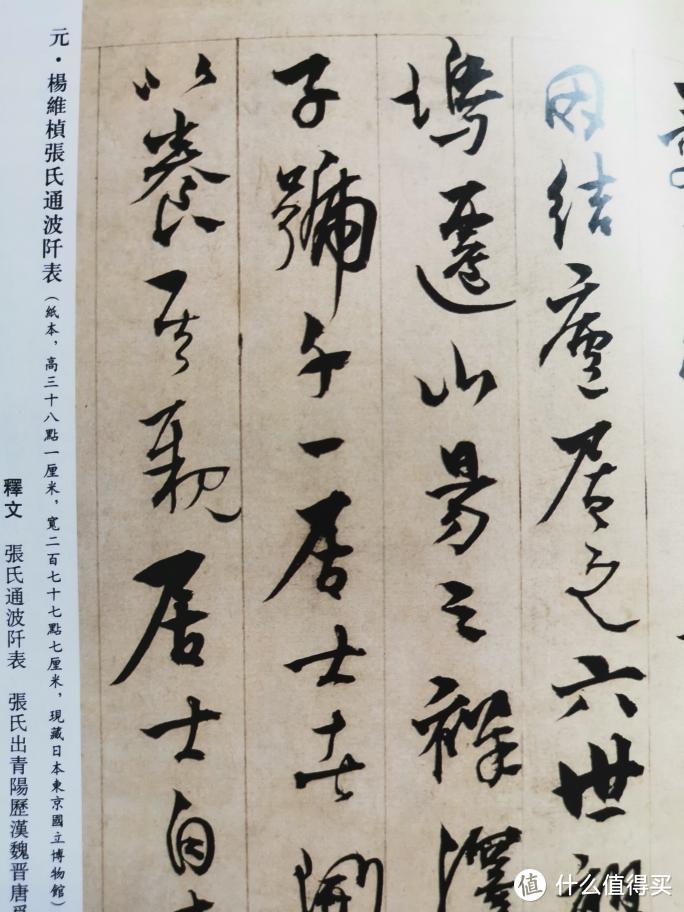 因結廬居之六世
塢遷山昜之祥澤
子號千一居士
以養其親居士自
元·楊維楨張氏通波阡表（紙本，高三十八點一厘米，寬二百七十七點七厘米，現藏日本東京國立博物館）
釋文 張氏通波阡表 張氏出青陽歷漢魏晋唐
值 什么值得买